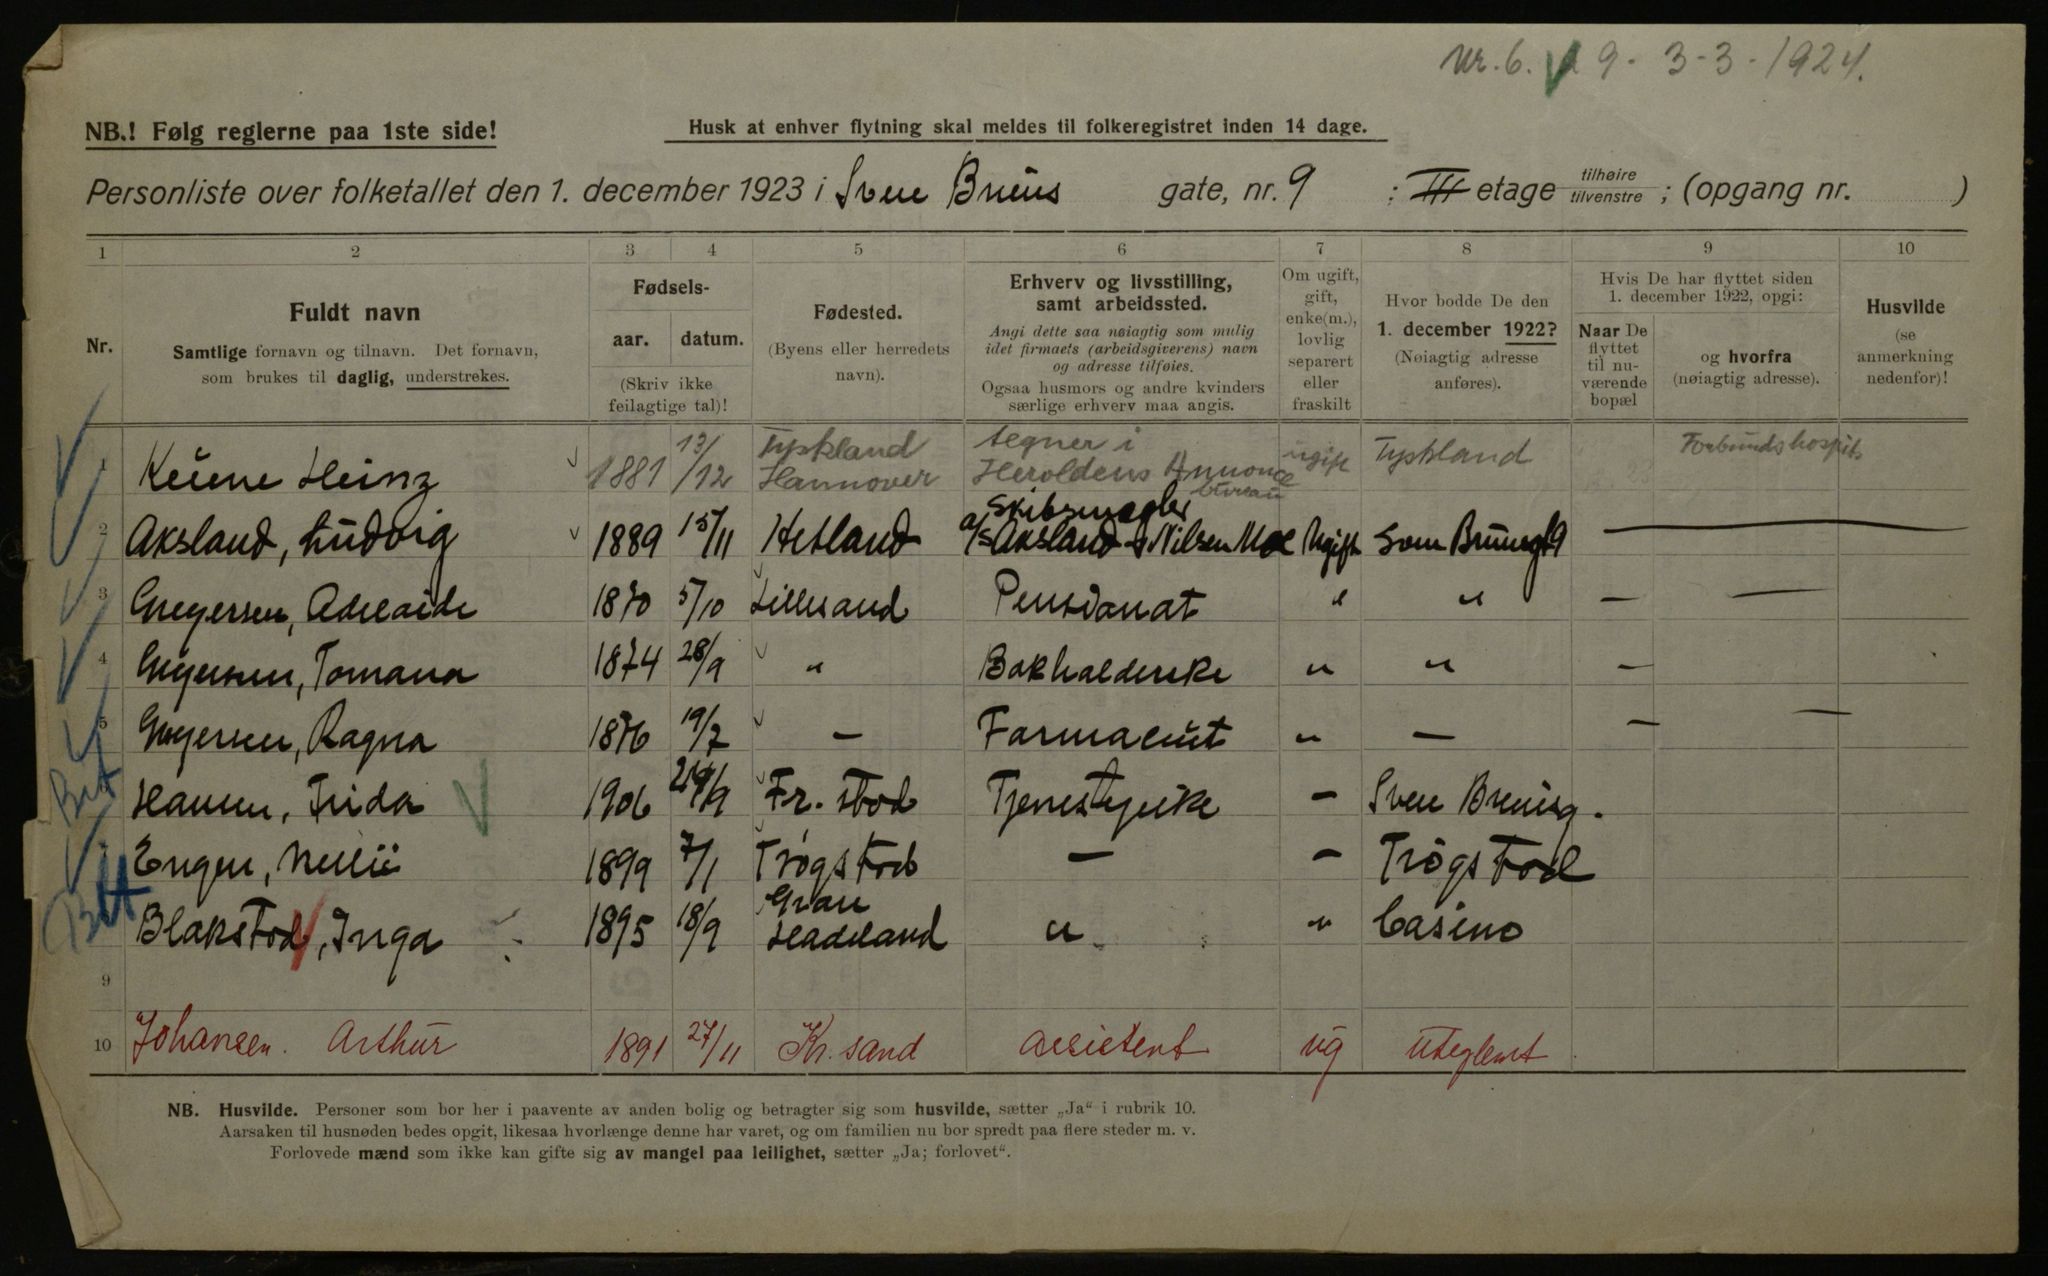 Nr. 6. 9 - 3-3-1924.
NB.! Følg reglerne paa 1ste side!
Husk at enhver flytning skal meldes til folkeregistret inden 14 dage.
Personliste over folketallet den 1. december 1923 i Sven Bruns gate, nr. 9 ; III etage tilhøire tilvenstre ; (opgang nr. )
1 2 3 4 5 6 7 8 9 10
Nr.
Fuldt navn
Samtlige fornavn og tilnavn. Det fornavn,
som brukes til daglig, understrekes.
Fødsels-
aar. datum.
(Skriv ikke
feilagtige tal)!
Fødested.
(Byens eller herredets
navn).
Erhverv og livsstilling,
samt arbeidssted.
Angi dette saa nøiagtig som mulig
idet firmaets (arbeidsgiverens) navn
og adresse tilføies.
Ogsaa husmors og andre kvinders
særlige erhverv maa angis.
Om ugift,
gift,
enke(m.),
lovlig
separert
eller
fraskilt
Hvor bodde De den
1. december 1922?
(Nøiagtig adresse
anføres).
Hvis De har flyttet siden
1. december 1922, opgi:
Naar De
flyttet
til nu-
værende
bopæl
og hvorfra
(nøiagtig adresse).
Husvilde
(se
anmerkning
nedenfor)!
1 Keune Heinz 1881 13/12 Tyskland Hannover tegner i Heroldens Annonce bureau ugift Tyskland Forbundshospits
2 Aksland, Ludvig 1889 15/11 Hetland Skibsmegler a/s Aksland & Nilsen Moe Ugift Sven Brunsgt 9 —
3 Gregersen, Adelaide 1870 5/10 Lillesand Pensionat " " — —
4 Gregersen, Tomana 1874 28/9 " Bokholderske " " —
5 Gregersen, Ragna 1876 19/7 — Farmaceut " — — —
Hansen, Frida 1906 24/9 Fr. stad Tjenestepike — Sven Brunsg.
7 Engen, Nelli 1899 7/1 Trøgstad — — Trøgstad
Blakstad, Inga 1895 18/9 Gran Hadeland " " Casino
9
10 Johansen. Arthur 1891 27/11 Kr. sand assistent ug uteglemt
NB. Husvilde. Personer som bor her i paavente av anden bolig og betragter sig som husvilde, sætter „Ja“ i rubrik 10.
Aarsaken til husnøden bedes opgit, likesaa hvorlænge denne har varet, og om familien nu bor spredt paa flere steder m. v.
Forlovede mænd som ikke kan gifte sig av mangel paa leilighet, sætter „Ja; forlovet“.